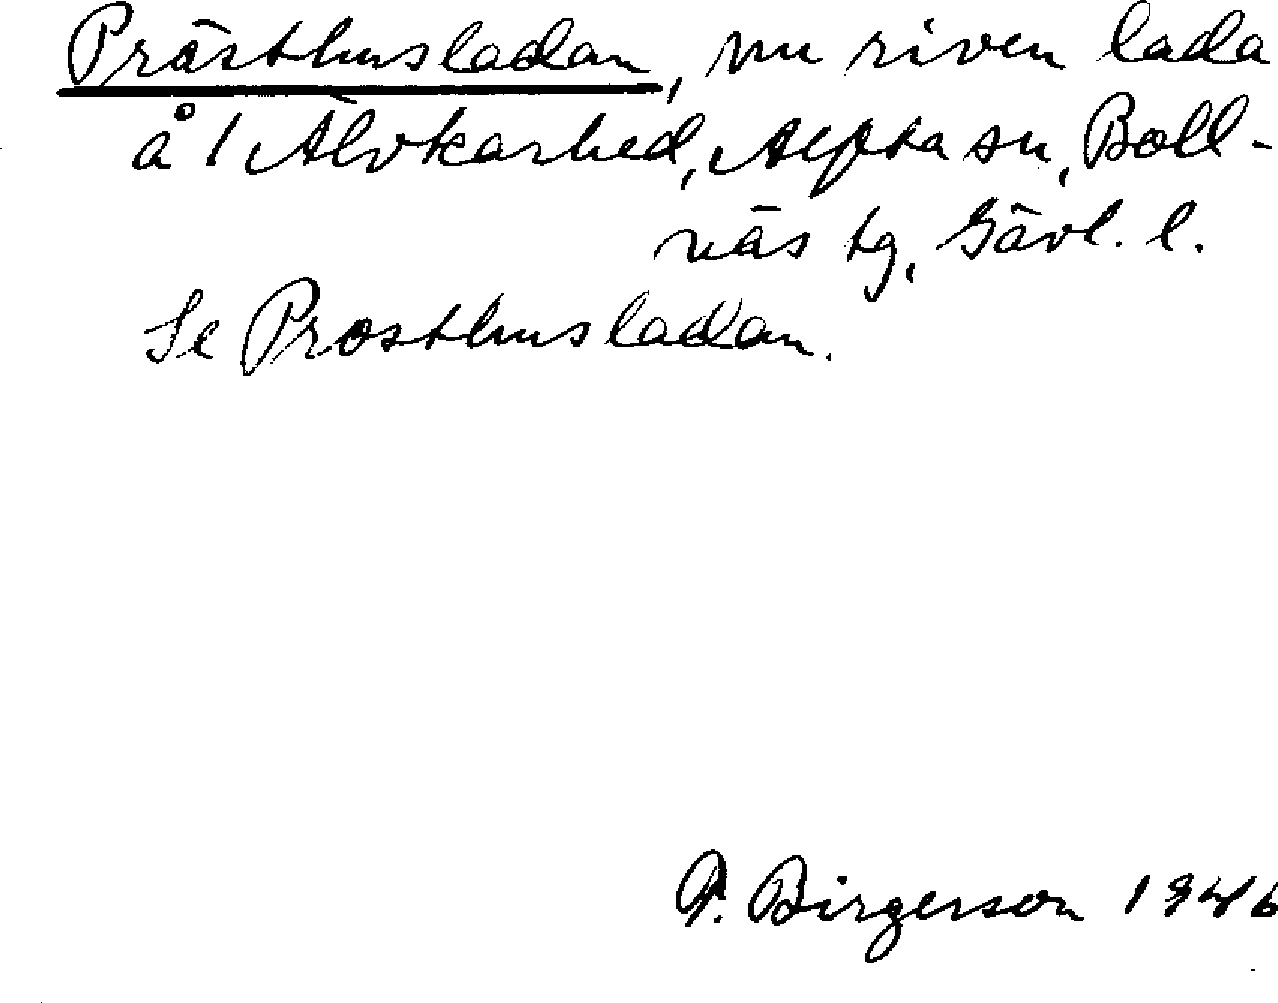 Prästhusladan, nu riven lada
å 1 Älvkarhed, Alfta sn, Boll-
näs tg, Gävl. l.
Se Prosthusladan.
P. Birgerson 1946